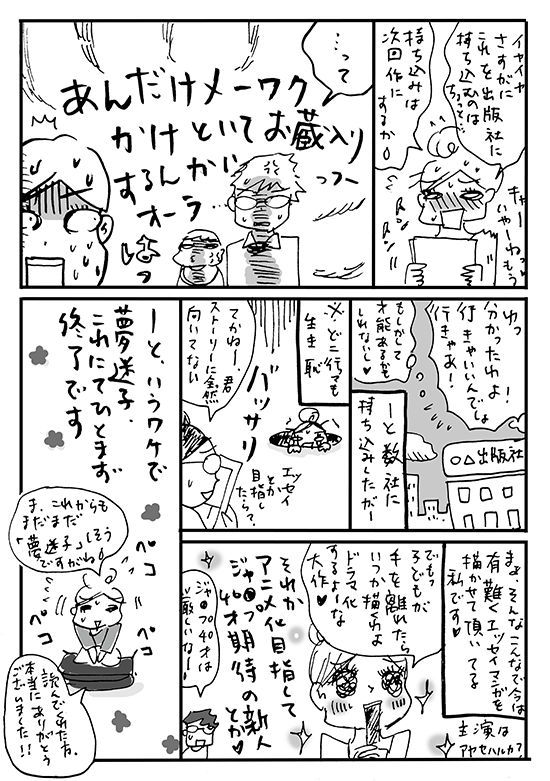 イヤイヤ
さすがに
これを出版社に
持ち込むのは
ちょっと…
持ち込みは
次回作に
するか
キャーっ
いやーわもう
…って
あんだけメーワク
かけといてお蔵入り
するんかい
オーラ
っつー
はっ
ゆっ
分かったわよ!
行きゃいいんでしょ
行きゃあ!
もしかして
才能あるかも
しれないし♥
○△出版社
ーと数社に
持ち込みしたがー
※どこ行っても
生き恥
バッサリ
てかねー、君
ストーリーに全然
向いてない
エッセイ
とか
目指し
たら?
ーと、いうワケで
夢迷子、
これにてひとまず
終了です
まぁ、そんなこんなで今は
有難くエッセイマンガを
描かせて頂いてる
私です♥
でもっ
子どもが
手を離れたら
いつか描くわよ
ドラマ化
するよーな
大作♥
主演は
アヤセハルカ?
それか
アニメ化目指して
ジャ●プ40才期待の新人
とか♥
ジャ●プ40才は
厳しいなー
ま、これからも
まだまだ
「夢迷子」しそう
ですがね
ペコ
ペコ
読んでくれた方、
本当にありがとう
ございました!!